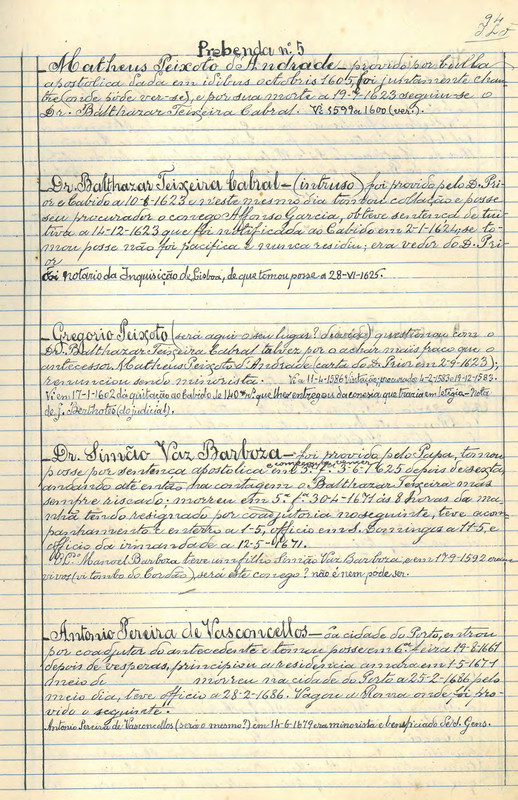 Prebenda nº 5
Matheus Peixoto d'Andrade – provido por bulla
apostolica dada em idibus octobris 1605, foi juntamente chan-
tre (onde póde ver-se), e por sua morte a 19- -1623 seguiu-se o
Dr. Balthazar Teixeira Cabral. Vi 1599 a 1600 (ver.).
Dr. Balthazar Teixeira Cabral – (intruso) foi provido pelo D. Pri-
or e Cabido a 10-8-1623 e neste mesmo dia tomou collação e posse
seu procurador o conego Affonso Garcia, obteve sentença de tui-
tiva a 14-12-1623 que foi notificada ao Cabido em 2-1-1624, se to-
mou posse não foi pacifica e nunca residiu; era vedor do D. Pri-
or
Foi notario da Inquisição de Lisboa, de que tomou posse a 28-VI-1625.
Gregorio Peixoto (será aqui o seu lugar? ) questionou com o
Dr. Balthazar Teixeira Cabral talvez por o achar mais fraco que o
antecessor Matheus Peixoto d'Andrade (carta do D. Prior em 2-9-1623);
renunciou sendo minorista. Vi a 11-4-1586 19-12-1583.
Vi em 17-1-1602 dá quitação ao Cabido de 140 que lhe entregou da conesia que trazia em letigio – nota
de J. Berthotes (do judicial).
Dr. Simão Vaz Barboza – foi provido pelo Papa, tomou
posse por sentença apostolica em 5.ª f.ª 5-6-1625 depois de sexta,
andando até então na contagem o Balthazar Teixeira mas
sempre riscado; morreu em 5.ª fª 30-4-1671 ás 8 horas da ma-
nhã tendo resignado por coadjutoria no seguinte, teve acom-
panhamento e enterro a 1-5, officio em S. Domingos a 11-5, e
officio da irmandade a 12-5-1671.
Manoel Barboza teve um filho Simão Vaz Barboza, e em 17-9-1592 eram
vivos (vi tombo do Cordão), será este conego? não é nem pode ser.
Antonio Pereira de Vasconcellos – da cidade do Porto, entrou
por coadjutor do antecedente e tomou posse em 6.ª feira 19-8-1667
depois de vesperas, principiou a residencia amara em 1-5-1671
morreu na cidade do Porto a 25-2-1686 pelo
meio dia, teve officio a 28-2-1686. Vagou a Roma onde foi pro-
vido o seguinte.
Antonio Pereira de Vasconcellos (será o mesmo?) em 14-6-1679 era minorista e beneficiado de S. Gens.